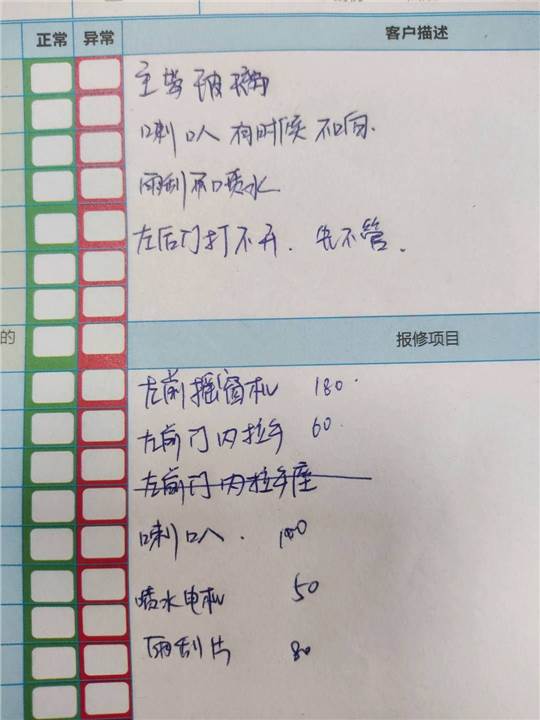 正常 异常 客户描述
主驾玻璃
喇叭 有时候不响.
雨刮不喷水
左后门打不开. 先不管.
的
报修项目
左前摇窗机 180.
左前门内拉手 60.
左前门内拉手座
喇叭.
喷水电机 50
雨刮片 80